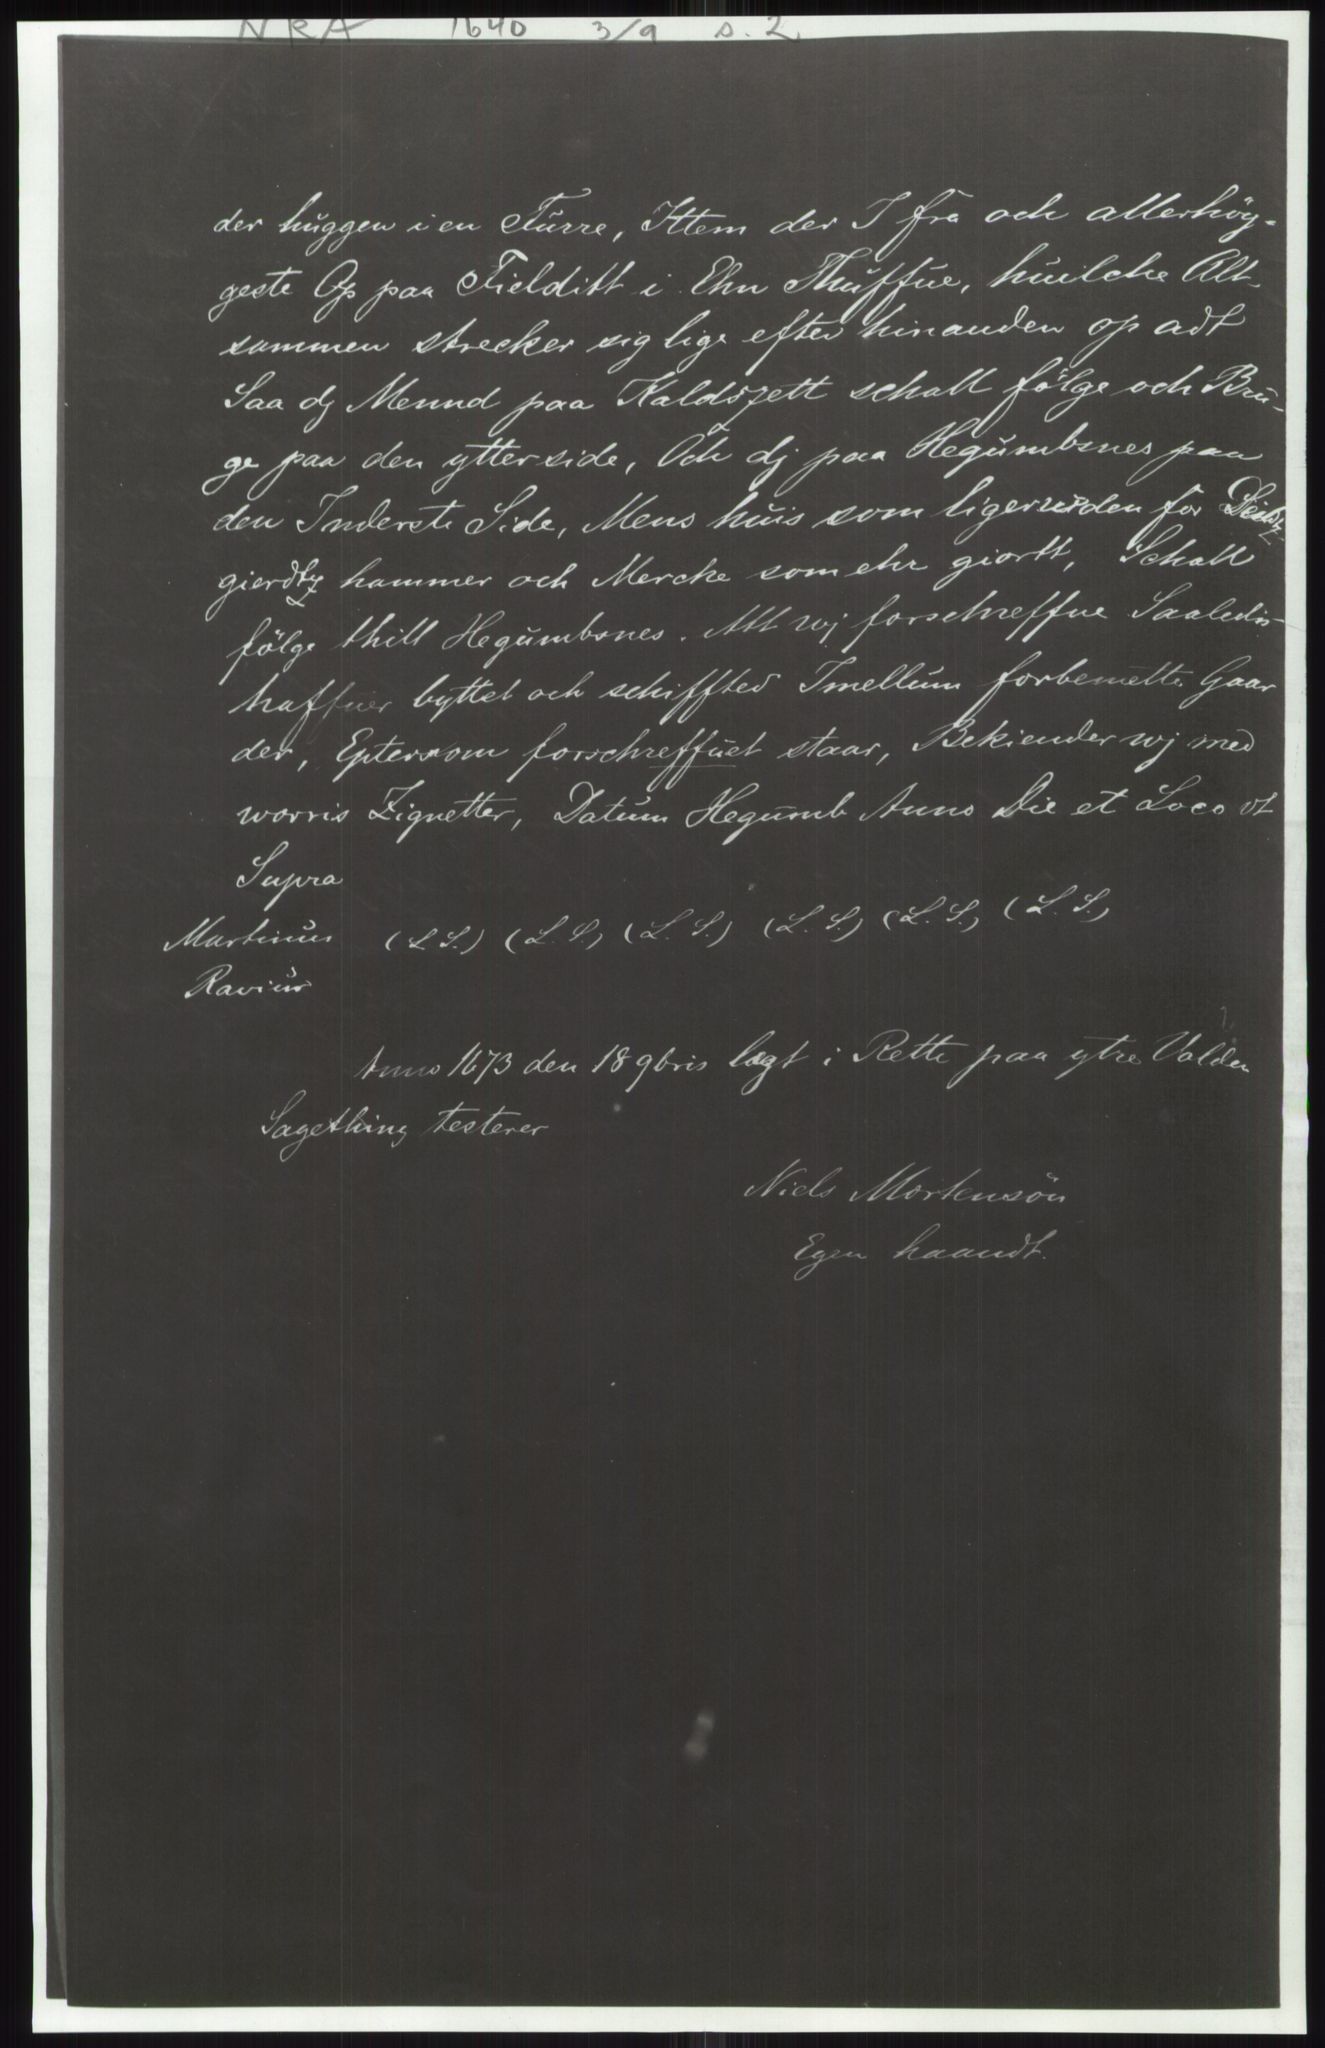 NRA 1640 3/9 s. 2
der huggen i en Furre, Ittem der I fra och allerhöy-
geste Op paa Fielditt i Ehn Thuffue, huilche Alt-
sammen strecker sig lige efter hinanden op adt
Saa dj Mennd paa Kaldszett schall fölge och Bru-
ge paa den ytterside, Och dj paa Hegumbsnes paa
den Inderste Side, Mens huis som ligerneden for
gierdtz hammer och Mercke som ehr giortt, Schall
fölge thill Hegumbsnes. Att wj forschreffue Saaledis
haffuer byttet och schiffted Imellum forbemette Gaar
der, Eptersom forschreffuet staar, Bekiender wj med
worris Zignetter, Datum Hegumb Anno Die et Loco vt
Supra
Martinus (L.S.) (L.S.) (L.S.) (L.S.) (L.S.) (L.S.)
Ravius
Anno 1673 den 18 9bris lagt i Rette paa ytre Valden
Sagething testerer
Niels Mortensön
Egen haandt.